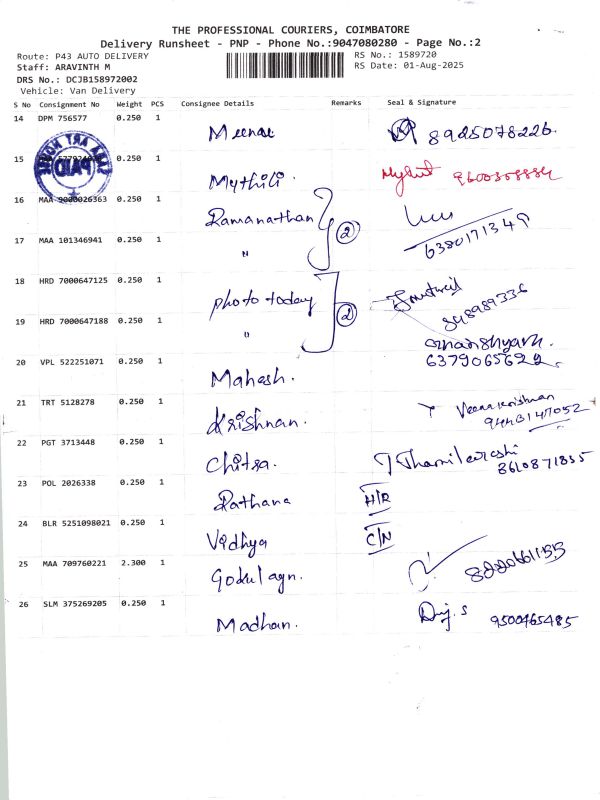 THE PROFESSIONAL COURIERS, COIMBATORE
Delivery Runsheet - PNP - Phone No.:9047080280 - Page No.:2
Route: P43 AUTO DELIVERY
RS No.: 1589720
Staff: ARAVINTH M
RS Date: 01-Aug-2025
DRS No.: DCJB158972002
Vehicle: Van Delivery
S No Consignment No Weight PCS Consignee Details Remarks Seal & Signature
14 DPM 756577 0.250 1 Meenae 8925078226.
15 0.250 1 Mythili. 
PAID
16 MAA 9000026363 0.250 1 Ramanathan 2 6380171349
17 MAA 101346941 0.250 1 "
18 HRD 7000647125 0.250 1 photo today 2 848989336
19 HRD 7000647188 0.250 1 " 6379065622
20 VPL 522251071 0.250 1 Mahesh.
21 TRT 5128278 0.250 1 Krishnan. 9443147052
22 PGT 3713448 0.250 1 Chitra. 8610871835
23 POL 2026338 0.250 1 Rathana H/R
24 BLR 5251098021 0.250 1 Vidhya C/N
25 MAA 709760221 2.300 1
26 SLM 375269205 0.250 1 Madhan. 9500465485